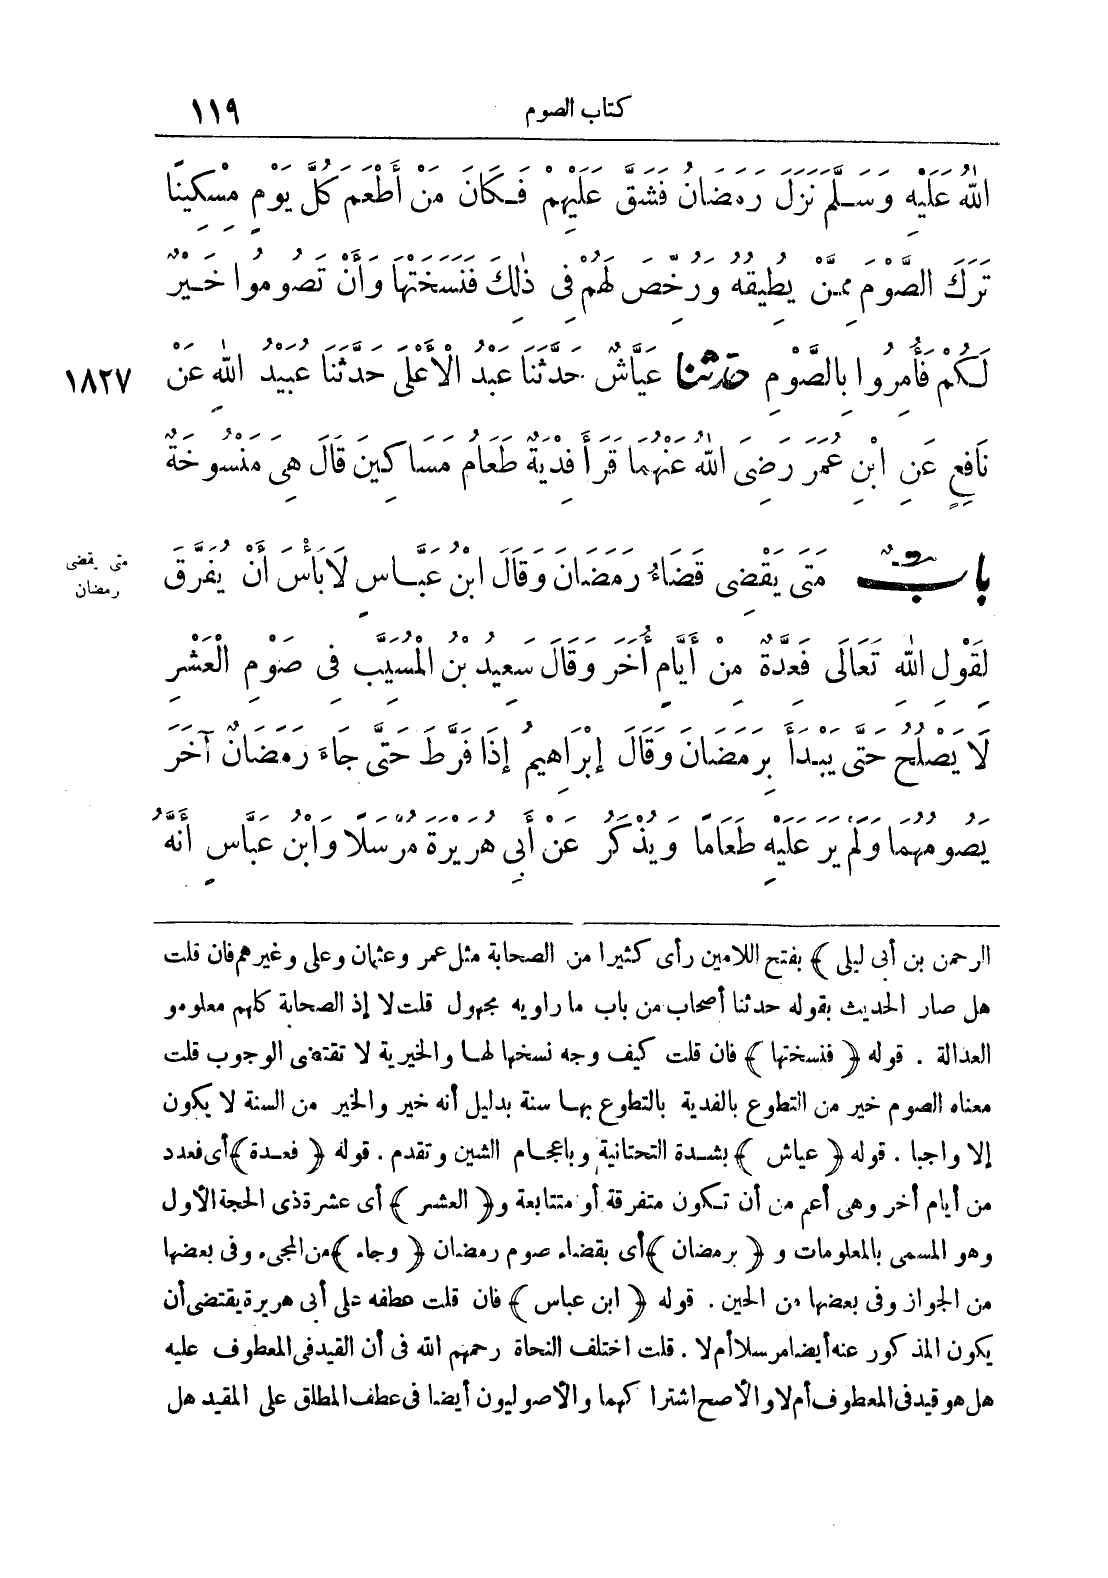 كتاب الصوم ١١٩
اللهُ عَلَيْهِ وَسَلَّمَ نَزَلَ رَمَضَانُ فَشَقَّ عَلَيْهِمْ فَكَانَ مَنْ أَطْعَمَ كُلَّ يَوْمٍ مِسْكِينًا
تَرَكَ الصَّوْمَ مِمَّنْ يُطِيقُهُ وَرُخِّصَ لَهُمْ فِى ذٰلِكَ فَنَسَخَتْهَا وَأَنْ تَصُومُوا خَيْرٌ
لَكُمْ فَأُمِرُوا بِالصَّوْمِ حَدَّثَنَا عَيَّاشٌ حَدَّثَنَا عَبْدُ الْأَعْلَى حَدَّثَنَا عُبَيْدُ اللهِ عَنْ
١٨٢٧
نَافِعٍ عَنِ ابْنِ عُمَرَ رَضِىَ اللهُ عَنْهُمَا قَرَأَ فِدْيَةٌ طَعَامُ مَسَاكِينَ قَالَ هِىَ مَنْسُوخَةٌ
بابٌ مَتَى يُقْضَى قَضَاءُ رَمَضَانَ وَقَالَ ابْنُ عَبَّاسٍ لَا بَأْسَ أَنْ يُفَرَّقَ
متى يقضى
رمضان
لِقَوْلِ اللهِ تَعَالَى فَعِدَّةٌ مِنْ أَيَّامٍ أُخَرَ وَقَالَ سَعِيدُ بْنُ الْمُسَيَّبِ فِى صَوْمِ الْعَشْرِ
لَا يَصْلُحُ حَتَّى يَبْدَأَ بِرَمَضَانَ وَقَالَ إِبْرَاهِيمُ إِذَا فَرَّطَ حَتَّى جَاءَ رَمَضَانٌ آخَرُ
يَصُومُهُمَا وَلَمْ يَرَ عَلَيْهِ طَعَامًا وَيُذْكَرُ عَنْ أَبِى هُرَيْرَةَ مُرْسَلًا وَابْنِ عَبَّاسٍ أَنَّهُ
الرحمن بن أبى ليلى ﴾ بفتح اللامين رأى كثيرا من الصحابة مثل عمر وعثمان وعلى وغيرهم فان قلت
هل صار الحديث بقوله حدثنا أصحاب من باب ما راويه مجهول قلت لا إذ الصحابة كلهم معلومو
العدالة . قوله ﴿ فنسختها ﴾ فان قلت كيف وجه نسخها لها والخيرية لا تقتضى الوجوب قلت
معناه الصوم خير من التطوع بالفدية بالتطوع بها سنة بدليل أنه خير والخير من السنة لا يكون
إلا واجبا . قوله ﴿ عياش ﴾ بشدة التحتانية وباعجام الشين وتقدم . قوله ﴿ فعدة ﴾ أى فعدد
من أيام أخر وهى أعم من أن تكون متفرقة أو متتابعة و﴿ العشر ﴾ أى عشرة ذى الحجة الأول
وهو المسمى بالمعلومات و ﴿ برمضان ﴾ أى بقضاء صوم رمضان ﴿ وجاء ﴾ من المجىء وفى بعضها
من الجواز وفى بعضها من الحين . قوله ﴿ ابن عباس ﴾ فان قلت عطفه على أبى هريرة يقتضى أن
يكون المذكور عنه أيضا مرسلا أم لا . قلت اختلف النحاة رحمهم الله فى أن القيد فى المعطوف عليه
هل هو قيد فى المعطوف أم لا والأصح اشتراكهما والأصوليون أيضا فى عطف المطلق على المقيد هل